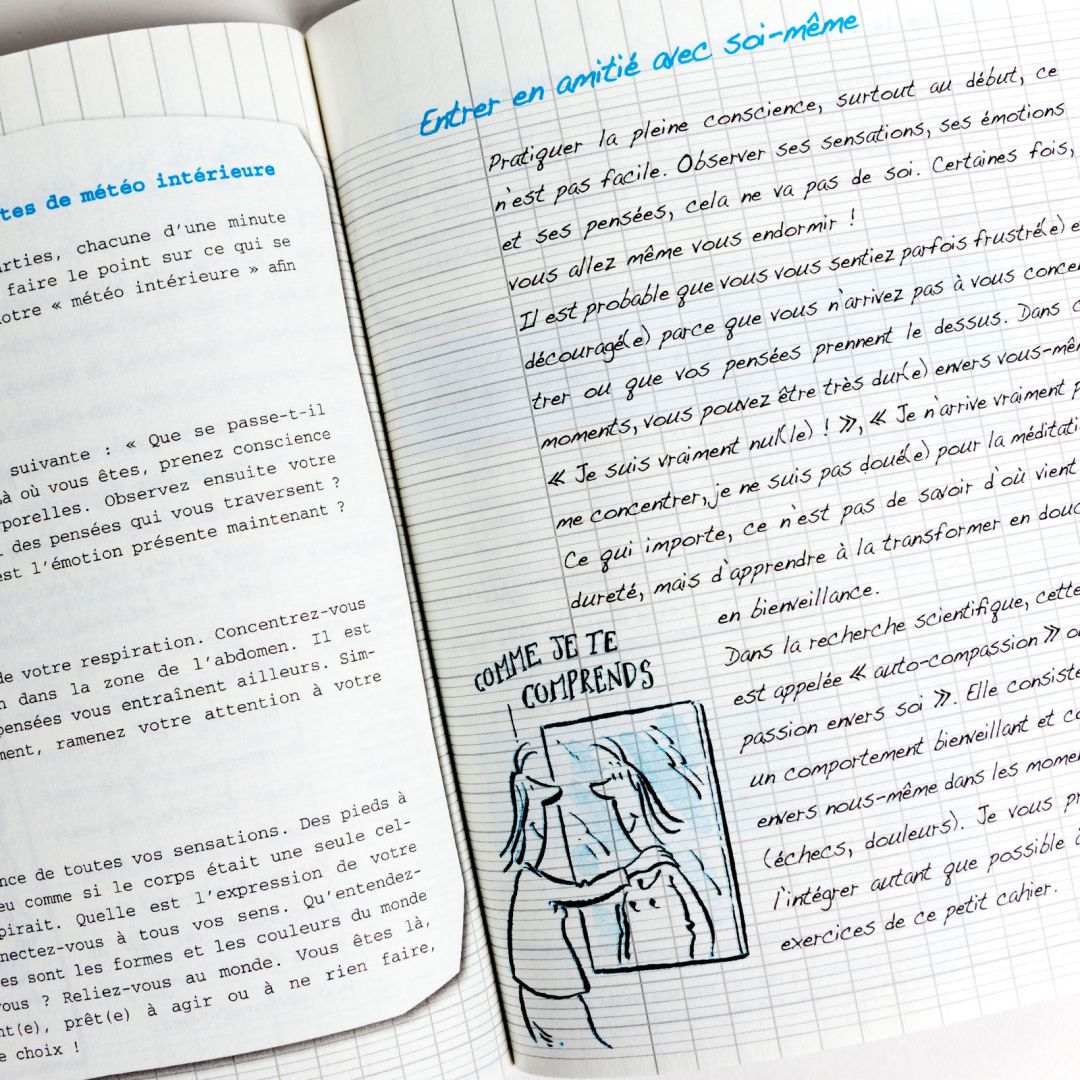 tes de météo intérieure
rties, chacune d'une minute
faire le point sur ce qui se
otre « météo intérieure » afin
suivante : « Que se passe-t-il
là où vous êtes, prenez conscience
rporelles. Observez ensuite votre
des pensées qui vous traversent ?
est l'émotion présente maintenant ?
de votre respiration. Concentrez-vous
n dans la zone de l'abdomen. Il est
pensées vous entraînent ailleurs. Sim-
ment, ramenez votre attention à votre
nce de toutes vos sensations. Des pieds à
eu comme si le corps était une seule cel-
pirait. Quelle est l'expression de votre
nectez-vous à tous vos sens. Qu'entendez-
es sont les formes et les couleurs du monde
vous ? Reliez-vous au monde. Vous êtes là,
nt(e), prêt(e) à agir ou à ne rien faire,
e choix !
Entrer en amitié avec soi-même
Pratiquer la pleine conscience, surtout au début, ce
n'est pas facile. Observer ses sensations, ses émotions
et ses pensées, cela ne va pas de soi. Certaines fois,
vous allez même vous endormir !
Il est probable que vous vous sentiez parfois frustré(e) e
découragé(e) parce que vous n'arrivez pas à vous concen
trer ou que vos pensées prennent le dessus. Dans c
moments, vous pouvez être très dur(e) envers vous-mêm
« Je suis vraiment nul(le) ! », « Je n'arrive vraiment p
me concentrer, je ne suis pas doué(e) pour la méditati
Ce qui importe, ce n'est pas de savoir d'où vient
dureté, mais d'apprendre à la transformer en douc
en bienveillance.
Dans la recherche scientifique, cette
est appelée « auto-compassion » o
passion envers soi ». Elle consiste
un comportement bienveillant et co
envers nous-même dans les momen
(échecs, douleurs). Je vous pr
l'intégrer autant que possible à
exercices de ce petit cahier.
COMME JE TE
COMPRENDS